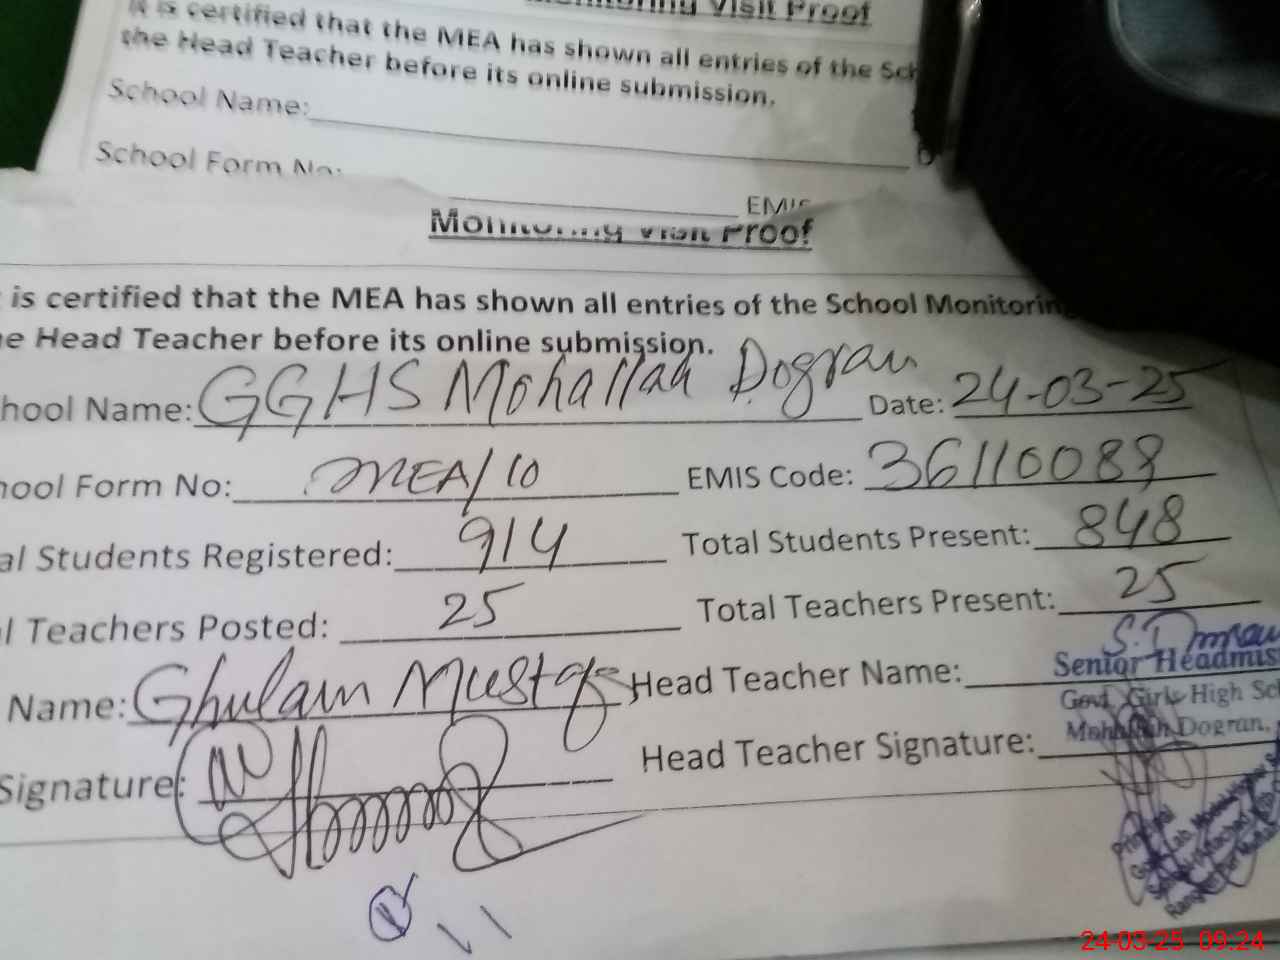 Monitoring Visit Proof
It is certified that the MEA has shown all entries of the Sch
the Head Teacher before its online submission.
School Name:
School Form No:
EMIS
Monitoring Visit Proof
is certified that the MEA has shown all entries of the School Monitorin
e Head Teacher before its online submission.
hool Name: GGHS Mohallah Dogran Date: 24-03-25
hool Form No: MEA/10 EMIS Code: 36110088
al Students Registered: 914 Total Students Present: 848
l Teachers Posted: 25 Total Teachers Present: 25
Name: Ghulam Mustafa Head Teacher Name:
Senior Headmis
Govt. Girls High Sch
Mohallah Dogran,
Signature: Head Teacher Signature:
Principal
24-03-25 09:24